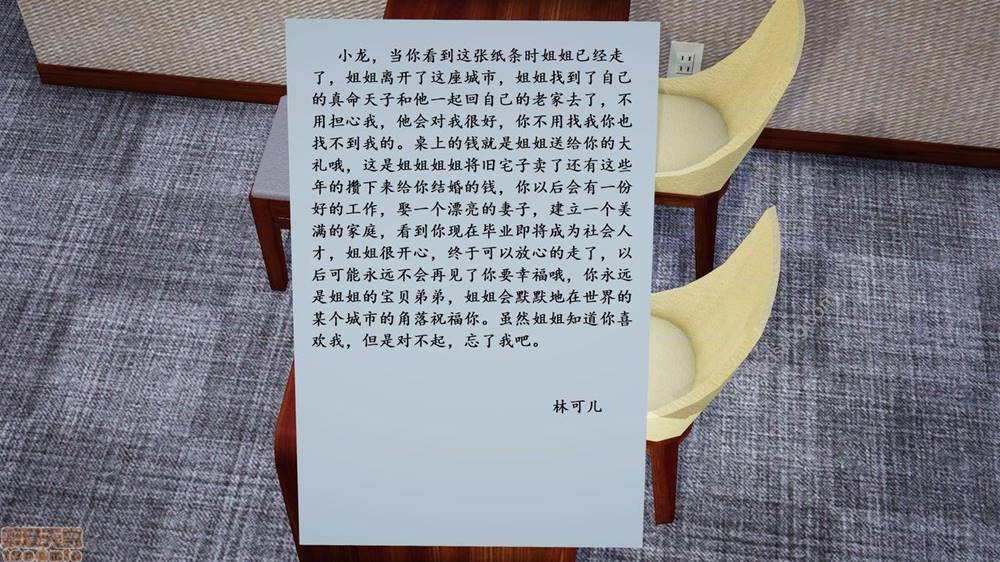 小龙，当你看到这张纸条时姐姐已经走
了，姐姐离开了这座城市，姐姐找到了自己
的真命天子和他一起回自己的老家去了，不
用担心我，他会对我很好，你不用找我你也
找不到我的。桌上的钱就是姐姐送给你的大
礼哦，这是姐姐姐姐将旧宅子卖了还有这些
年的攒下来给你结婚的钱，你以后会有一份
好的工作，娶一个漂亮的妻子，建立一个美
满的家庭，看到你现在毕业即将成为社会人
才，姐姐很开心，终于可以放心的走了，以
后可能永远不会再见了你要幸福哦，你永远
是姐姐的宝贝弟弟，姐姐会默默地在世界的
某个城市的角落祝福你。虽然姐姐知道你喜
欢我，但是对不起，忘了我吧。
林可儿